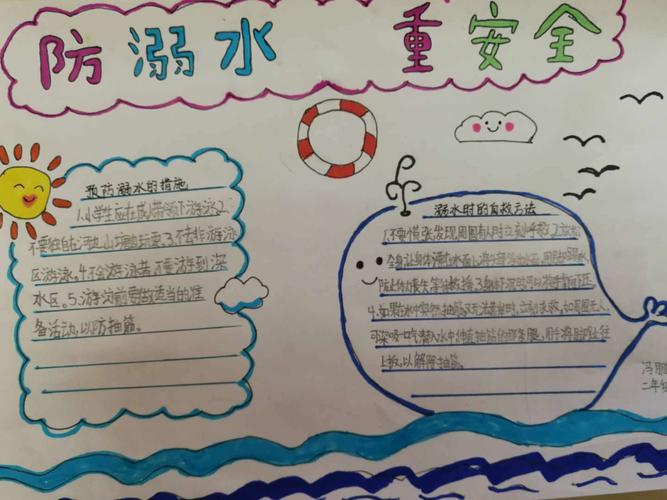 防溺水 重安全
预防溺水的措施
1.小学生应在成人带领下游泳2.
不要独自在河边、山塘边玩耍3.不去非游泳
区游泳。4.不会游泳者,不要游到深
水区。5.游泳前要做适当的准
备活动,以防抽筋。
溺水时的自救方法
1.不要慌张,发现周围有人时立刻呼救2.放松
全身,让身体漂浮在水面上,将头部浮出水面,用脚踢水,
防止体力丧失,等待救援3.身体下沉时可以将手掌向下压
4.如果在水中突然抽筋,又无法靠岸时,立刻求救,如周围无人,
可深吸一口气潜入水中,伸直抽筋的那条腿,用手将脚趾向上
上扳,以解除抽筋。
冯朋
二年级